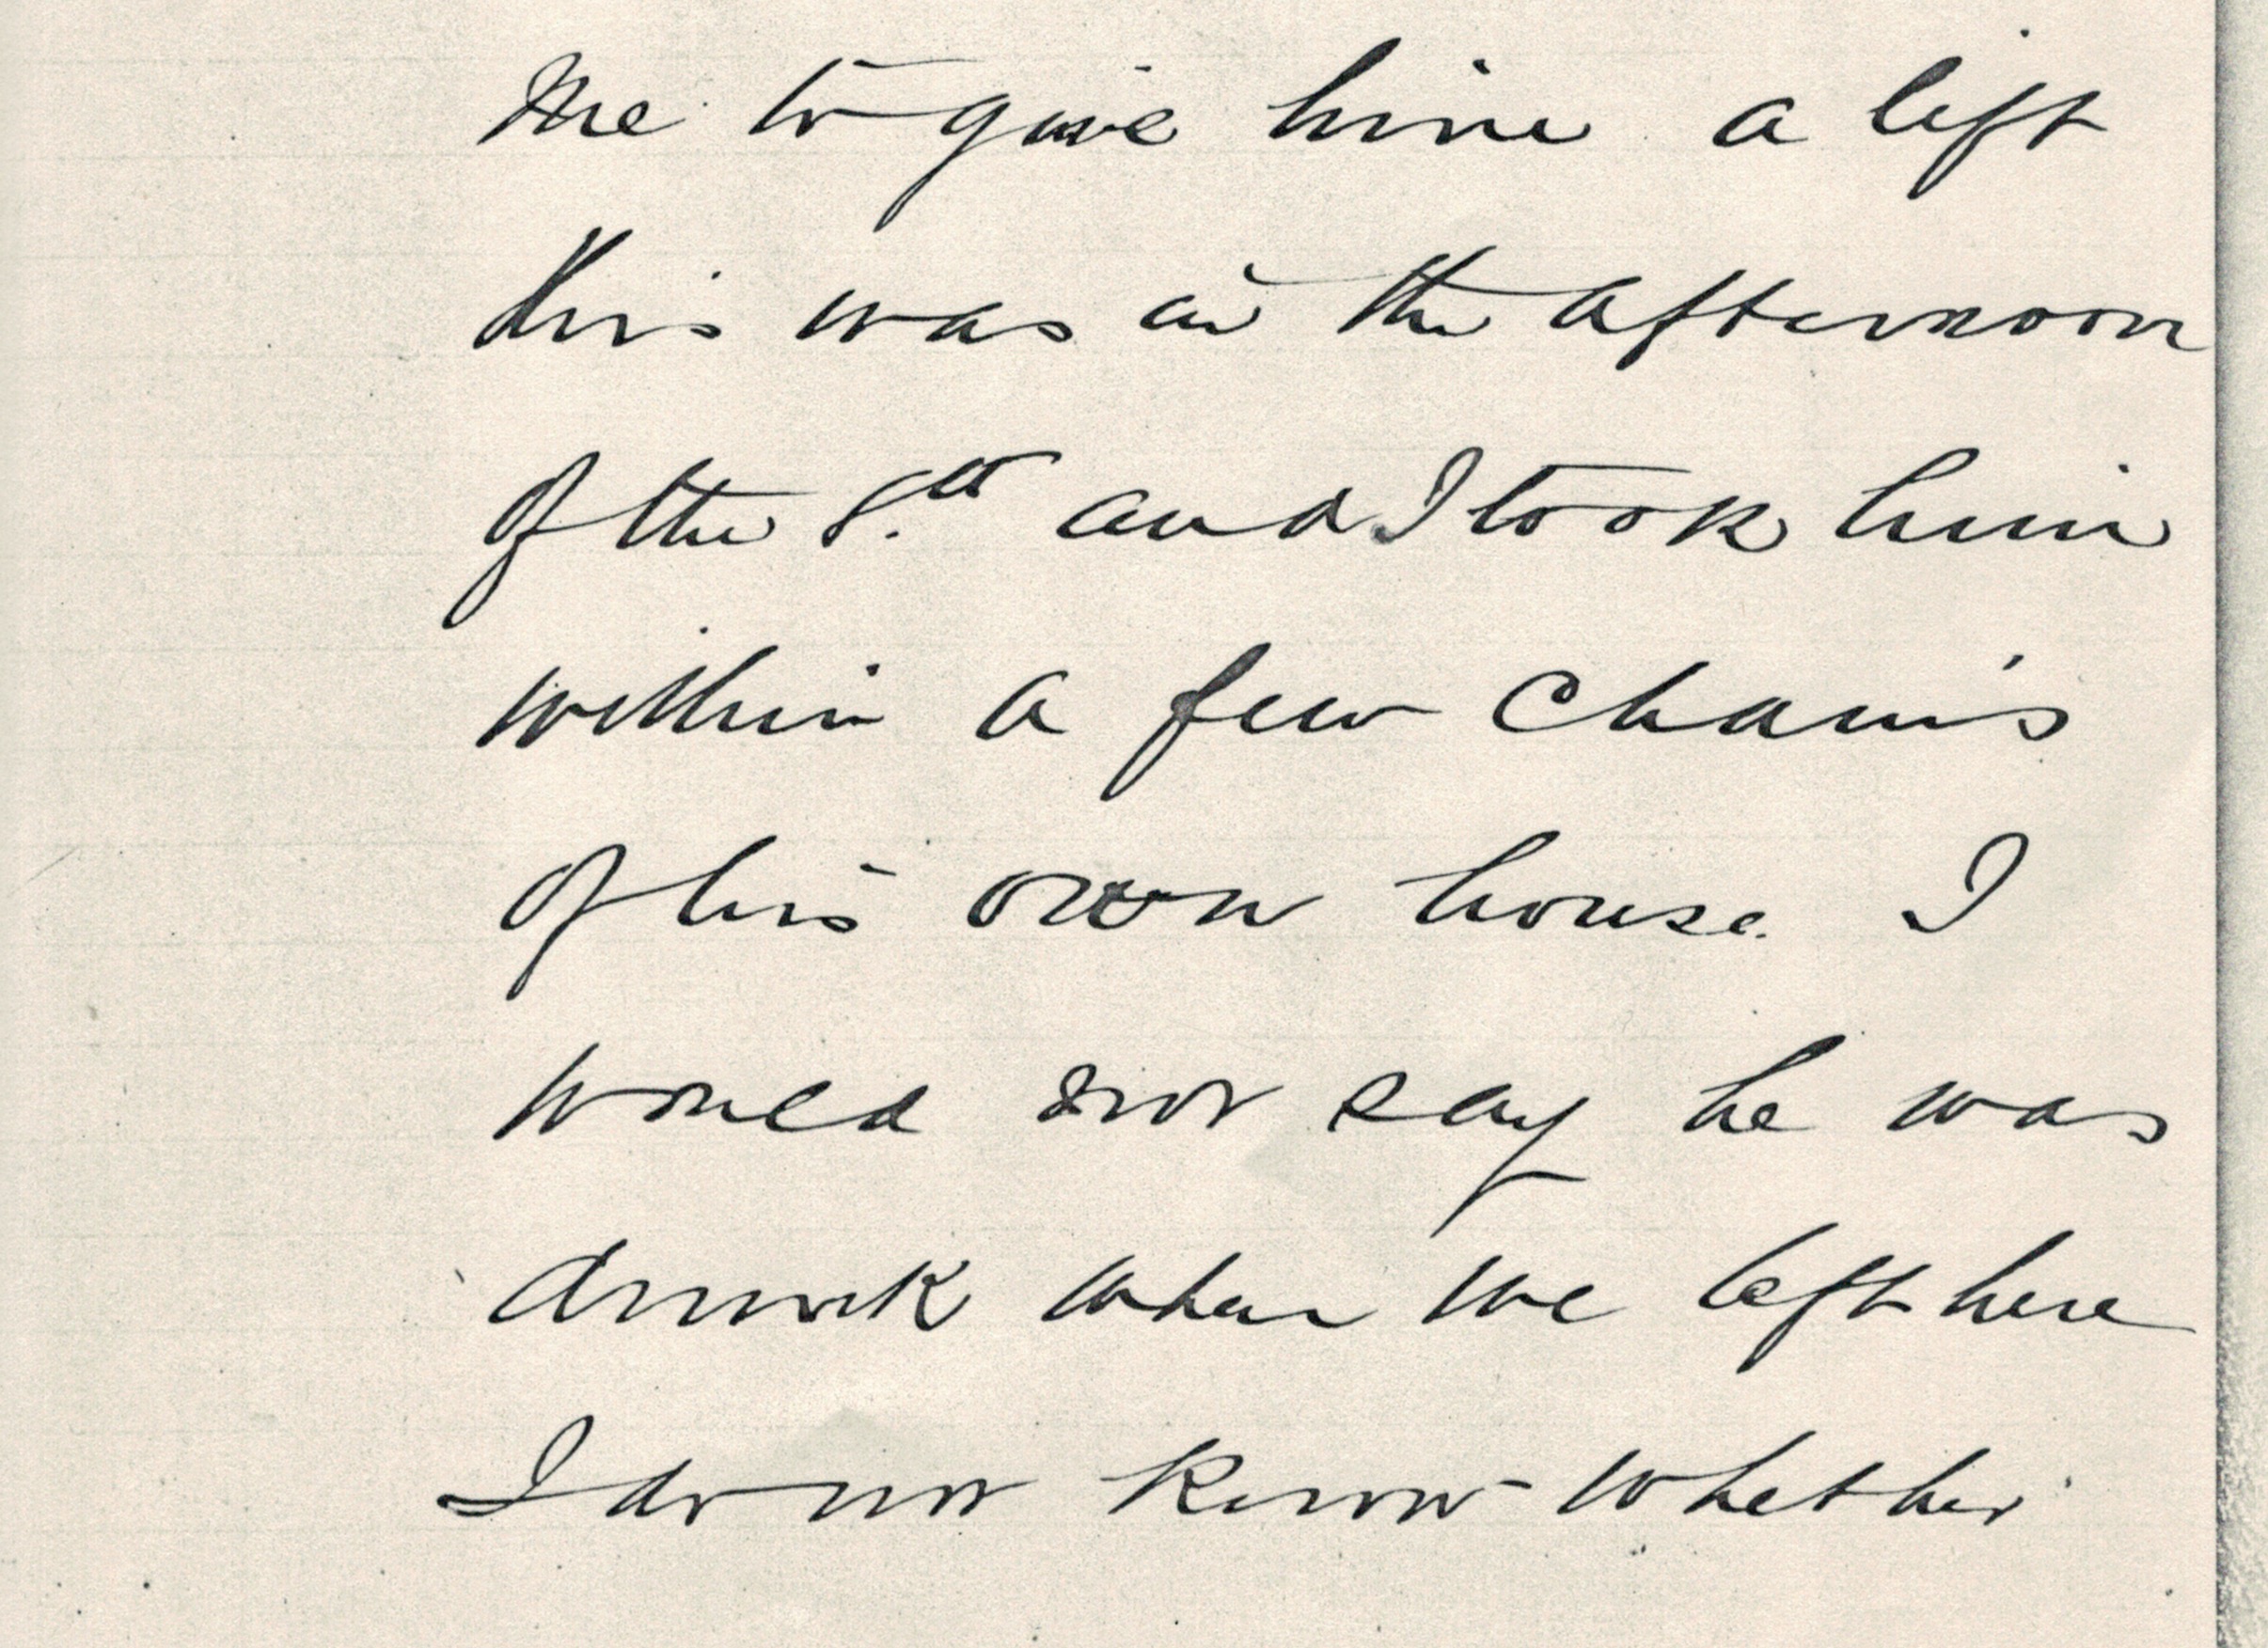 me to give him a lift
this was in the afternoon
of the 8.th and I took him
within a few chains
of his own house. I
would not say he was
drunk when we left here
I do not know whether